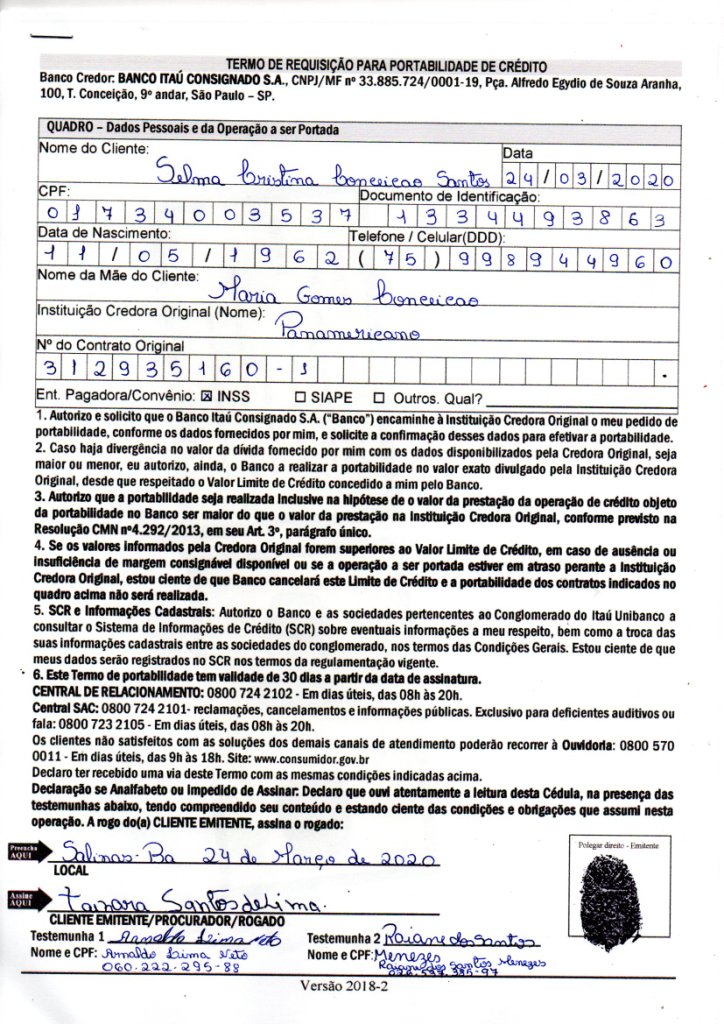 TERMO DE REQUISIÇÃO PARA PORTABILIDADE DE CRÉDITO
Banco Credor: BANCO ITAÚ CONSIGNADO S.A., CNPJ/MF nº 33.885.724/0001-19, Pça. Alfredo Egydio de Souza Aranha,
100, T. Conceição, 9º andar, São Paulo – SP.
QUADRO – Dados Pessoais e da Operação a ser Portada
Nome do Cliente: Selma Cristina Conceicao Santos
Data 24/03/2020
CPF: 01734003537
Documento de Identificação: 1334493863
Data de Nascimento: 11/05/1962
Telefone / Celular(DDD): (75)998944960
Nome da Mãe do Cliente: Maria Gomes Conceicao
Instituição Credora Original (Nome): Panamericano
Nº do Contrato Original
312935160-1
Ent. Pagadora/Convênio: ☒ INSS ☐ SIAPE ☐ Outros. Qual?
1. Autorizo e solicito que o Banco Itaú Consignado S.A. (“Banco”) encaminhe à Instituição Credora Original o meu pedido de
portabilidade, conforme os dados fornecidos por mim, e solicite a confirmação desses dados para efetivar a portabilidade.
2. Caso haja divergência no valor da dívida fornecido por mim com os dados disponibilizados pela Credora Original, seja
maior ou menor, eu autorizo, ainda, o Banco a realizar a portabilidade no valor exato divulgado pela Instituição Credora
Original, desde que respeitado o Valor Limite de Crédito concedido a mim pelo Banco.
3. Autorizo que a portabilidade seja realizada inclusive na hipótese de o valor da prestação da operação de crédito objeto
da portabilidade no Banco ser maior do que o valor da prestação na Instituição Credora Original, conforme previsto na
Resolução CMN nº4.292/2013, em seu Art. 3º, parágrafo único.
4. Se os valores informados pela Credora Original forem superiores ao Valor Limite de Crédito, em caso de ausência ou
insuficiência de margem consignável disponível ou se a operação a ser portada estiver em atraso perante a Instituição
Credora Original, estou ciente de que Banco cancelará este Limite de Crédito e a portabilidade dos contratos indicados no
quadro acima não será realizada.
5. SCR e Informações Cadastrais: Autorizo o Banco e as sociedades pertencentes ao Conglomerado do Itaú Unibanco a
consultar o Sistema de Informações de Crédito (SCR) sobre eventuais informações a meu respeito, bem como a troca das
suas informações cadastrais entre as sociedades do conglomerado, nos termos das Condições Gerais. Estou ciente de que
meus dados serão registrados no SCR nos termos da regulamentação vigente.
6. Este Termo de portabilidade tem validade de 30 dias a partir da data de assinatura.
CENTRAL DE RELACIONAMENTO: 0800 724 2102 - Em dias úteis, das 08h às 20h.
Central SAC: 0800 724 2101- reclamações, cancelamentos e informações públicas. Exclusivo para deficientes auditivos ou
fala: 0800 723 2105 - Em dias úteis, das 08h às 20h.
Os clientes não satisfeitos com as soluções dos demais canais de atendimento poderão recorrer à Ouvidoria: 0800 570
0011 - Em dias úteis, das 9h às 18h. Site: www.consumidor.gov.br
Declaro ter recebido uma via deste Termo com as mesmas condições indicadas acima.
Declaração se Analfabeto ou Impedido de Assinar: Declaro que ouvi atentamente a leitura desta Cédula, na presença das
testemunhas abaixo, tendo compreendido seu conteúdo e estando ciente das condições e obrigações que assumi nesta
operação. A rogo do(a) CLIENTE EMITENTE, assina o rogado:
Polegar direito - Emitente
Preencha AQUI
Salinas-Ba 24 de Março de 2020
LOCAL
Assine AQUI
Tainara Santos de Lima.
CLIENTE EMITENTE/PROCURADOR/ROGADO
Testemunha 1 Arnaldo Lima Neto
Nome e CPF: Arnaldo Lima Neto
060.222.295-88
Testemunha 2 Raiane dos Santos
Menezes
Nome e CPF: Raiane dos Santos Menezes
Versão 2018-2